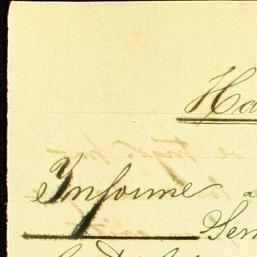 Ha
Informe a
Sen